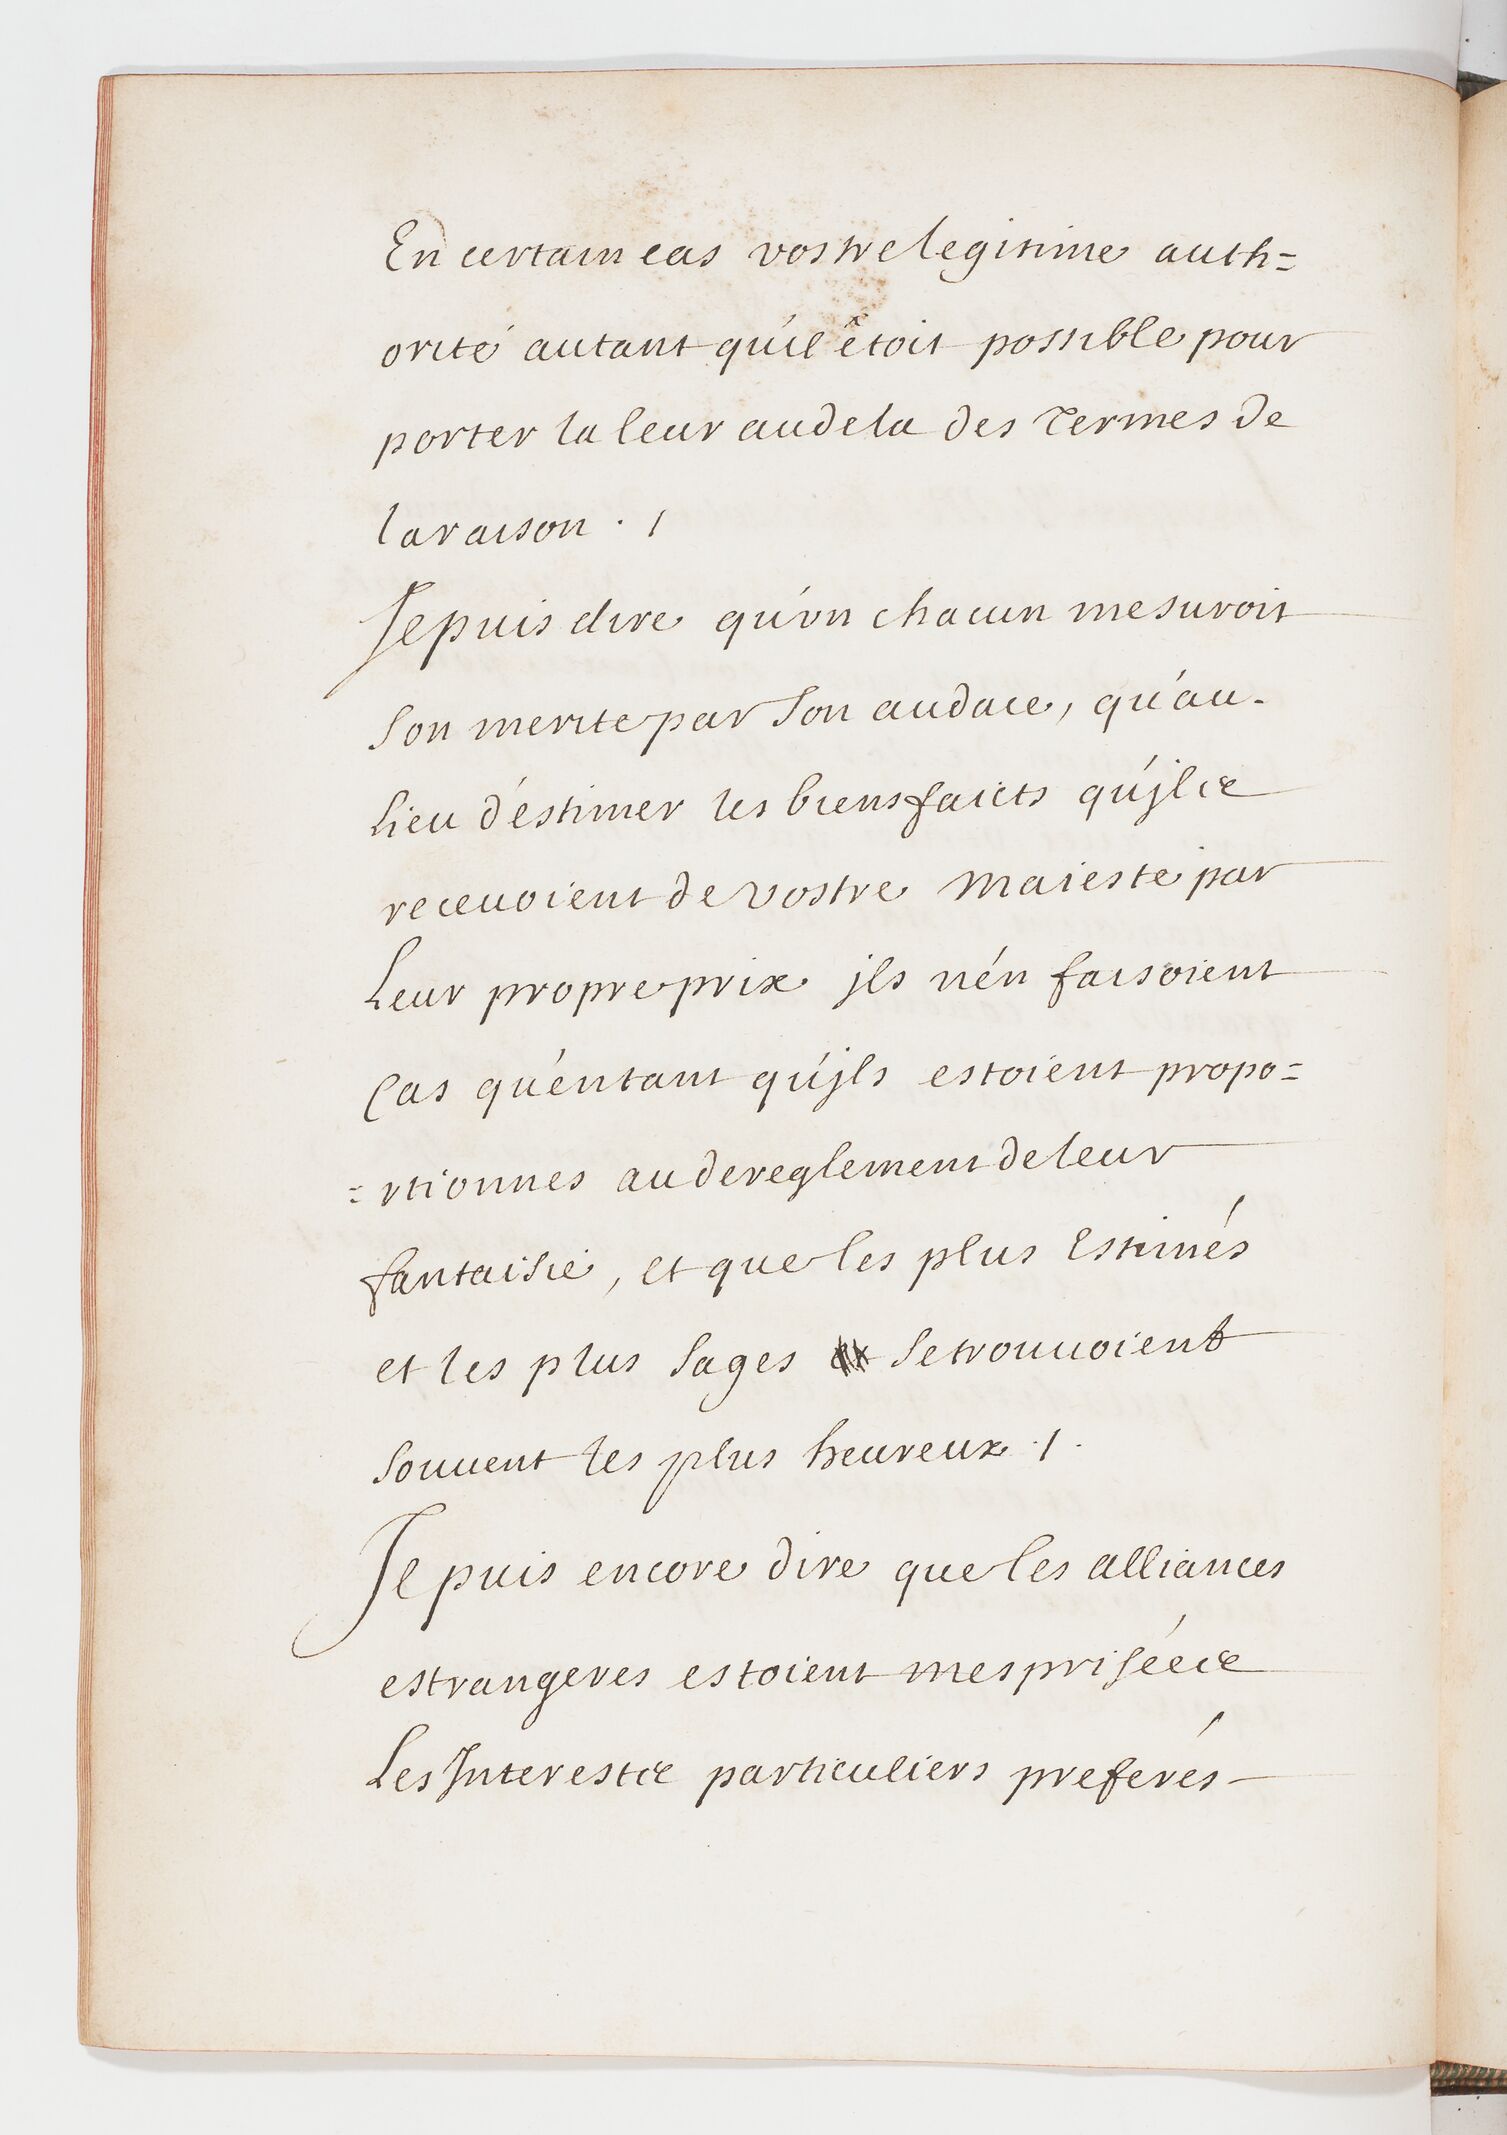 En certain cas vostre legitime auth=
orité autant qu'il êtoit possible pour
porter la leur audela des termes de
la raison . /
Je puis dire qu'vn chacun mesuroit
son merite par son audace, qu'au-
lieu d'éstimer les biensfaicts qu'jls
recevoient de vostre Maieste par
Leur propre prix jls n'én faisoient
Cas qu'éntant qu'jls estoient propo=
=rtionnes au dereglement de leur
fantaisie, et que les plus Estimés
et les plus sages se trouuoient
souuent les plus heureux . / .
Je puis encore dire que les alliances
estrangeres estoient mesprisées
Les Interests particuliers preferés